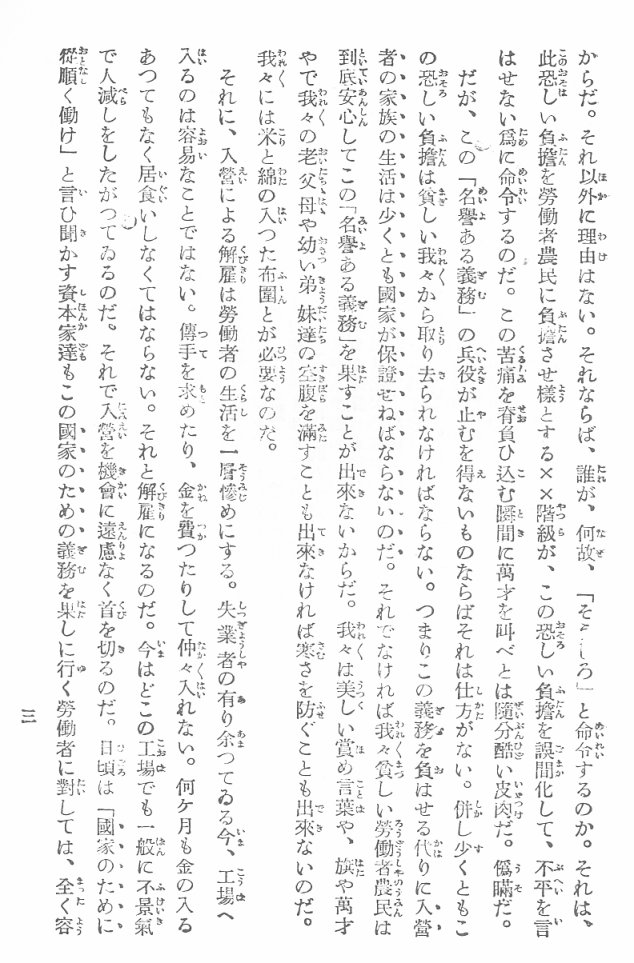 からだ。それ以外に理由はない。それならば、誰が、何故、「そうしろ」と命令するのか。それは、
此恐しい負擔を勞働者農民に負擔させ樣とする××階級が、この恐しい負擔を誤間化して、不平を言
はせない爲に命令するのだ。この苦痛を脊負ひ込む瞬間に萬才を叫べとは隨分酷い皮肉だ。僞瞞だ。
だが、この「名譽ある義務」の兵役が止むを得ないものならばそれは仕方がない。併し少くともこ
の恐しい負擔は貧しい我々から取り去られなければならない。つまりこの義務を負はせる代りに入營
者の家族の生活は少くとも國家が保證せねばならないのだ。それでなければ我々貧しい勞働者農民は
到底安心してこの「名譽ある義務」を果すことが出來ないからだ。我々は美しい賞め言葉や、旗や萬才
やで我々の老父母や幼い弟妹達の空腹を滿すことも出來なければ寒さを防ぐことも出來ないのだ。
我々には米と綿の入つた布團とが必要なのだ。
それに、入營による解雇は勞働者の生活を一層慘めにする。失業者の有り余つてゐる今、工場へ
入るのは容易なことではない。傳手を求めたり、金を費つたりして仲々入れない。何ケ月も金の入る
あつてもなく居食いしなくてはならない。それと解雇になるのだ。今はどこの工場でも一般に不景氣
で人減しをしたがつてゐるのだ。それで入營を機會に遠慮なく首を切るのだ。日頃は「國家のために
從順く働け」と言ひ聞かす資本家達もこの國家のための義務を果しに行く勞働者に對しては、全く容
三